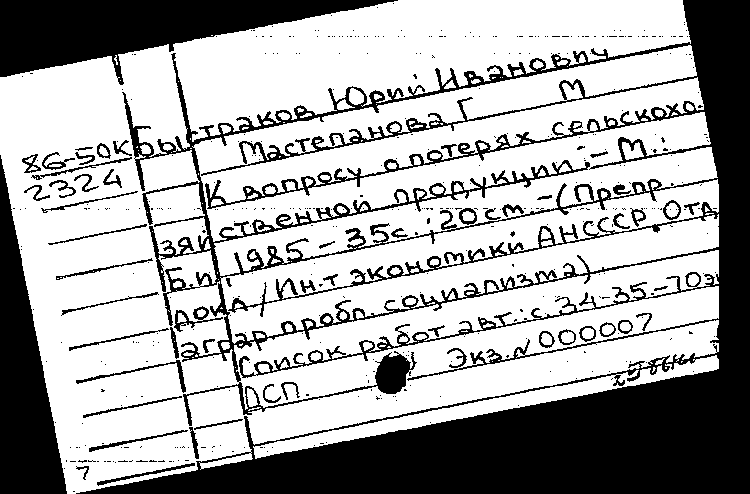 Быстраков, Юрий Иванович
86-50К Мастепанова, Г М
2324 К вопросу о потерях сельскохо-
зяйственной продукции.- М.:
Б.и., 1985 - 35с.; 20см. - (Препр.
докл/Ин-т экономики АНСССР. Отд
аграр. пробл. социализма).
Список работ авт.: с. 34-35.-70э
ДСП. Экз.N 000007
7